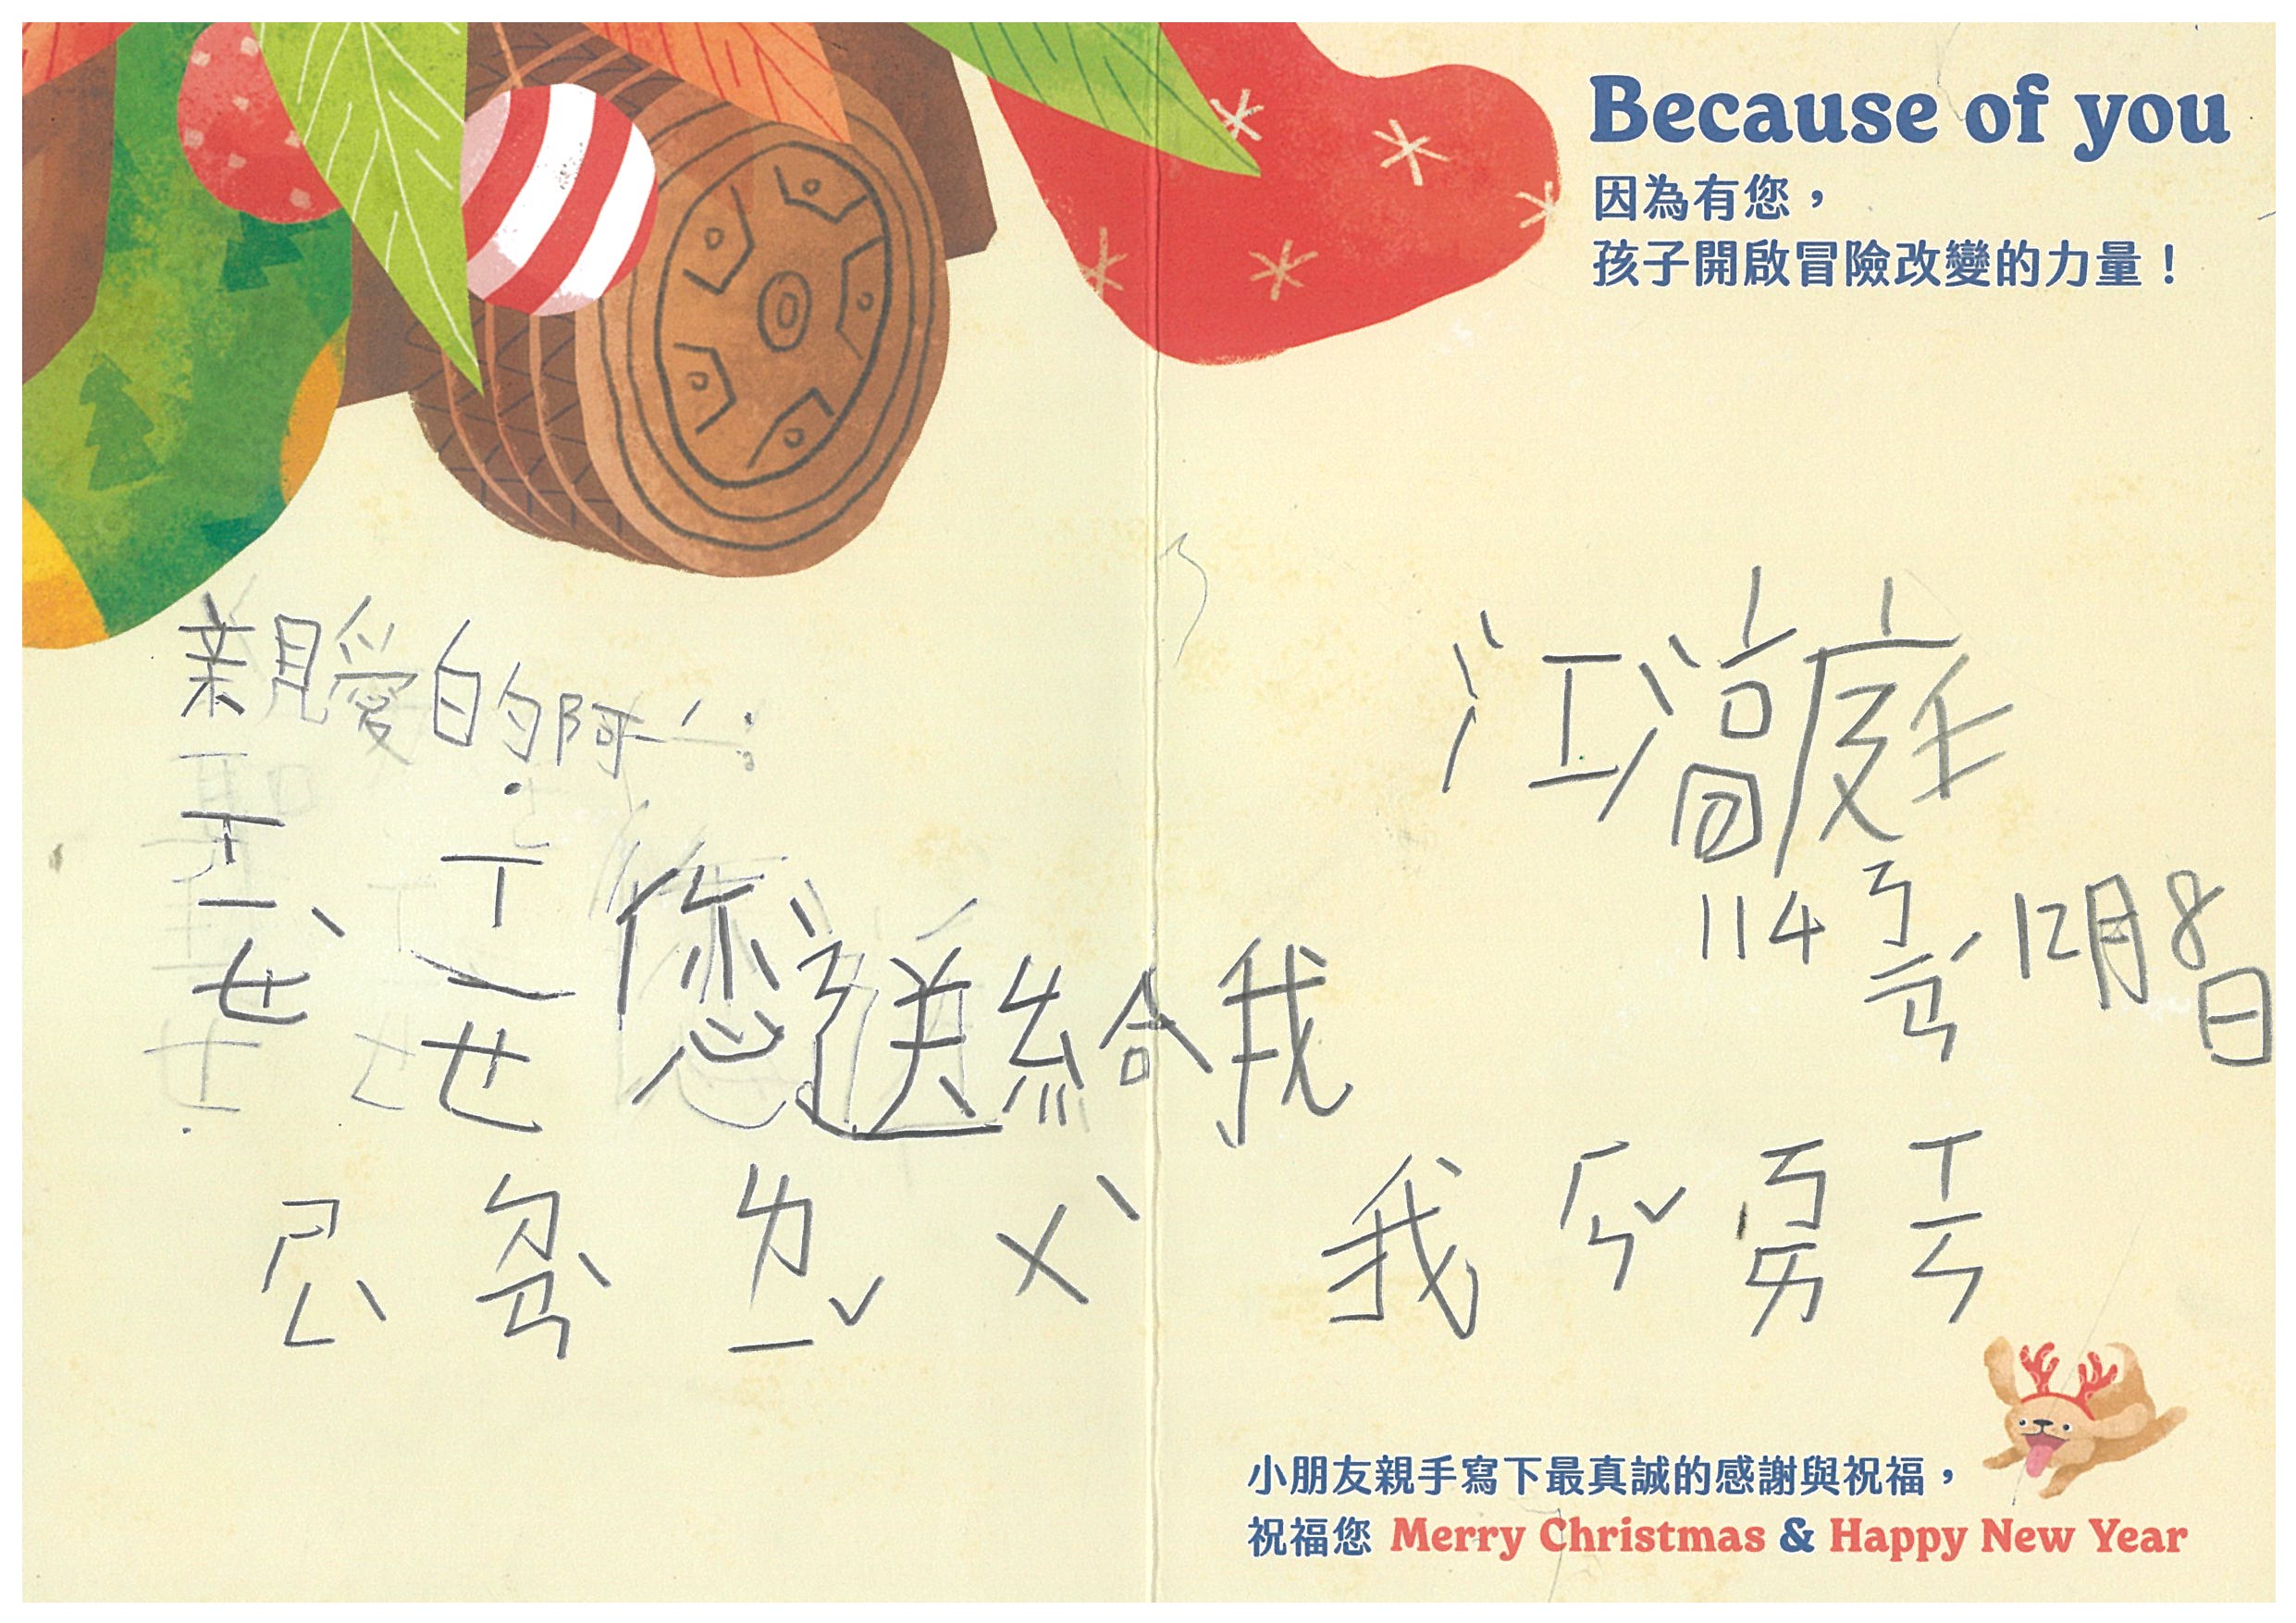 Because of you
因為有您，
孩子開啟冒險改變的力量！
親愛的阿
ㄒㄧㄝˋ ˙ㄒㄧㄝ 您送給我
ㄕㄥˋ ㄉㄢˋ ㄌㄧˇ ㄨˋ
我 ㄏㄣˇ ㄎㄞ ㄒㄧㄣ
江滈庭
114 ㄋㄧㄢˊ 12月8日
小朋友親手寫下最真誠的感謝與祝福，
祝福您 Merry Christmas & Happy New Year